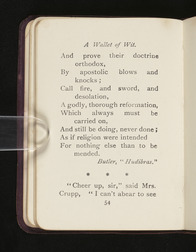 A Wallet of Wit.
And prove their doctrine
orthodox,
By apostolic blows and
knocks ;
Call fire, and sword, and
desolation,
A godly, thorough reformation,
Which always must be
carried on,
And still be doing, never done ;
As if religion were intended
For nothing else than to be
mended.
Butler, "Hudibras."
* * *
"Cheer up, sir," said Mrs.
Crupp, "I can't abear to see
54